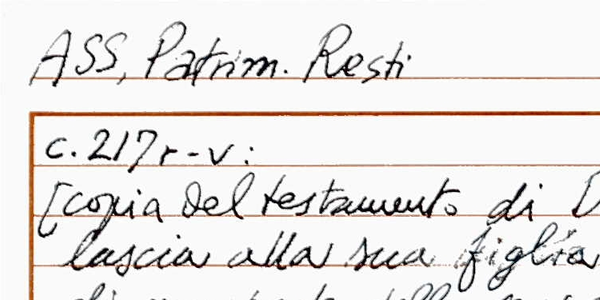 ASS, Patrim. Resti
c. 217 r-v:
[copia del testamento di D
lascia alla sua figlia